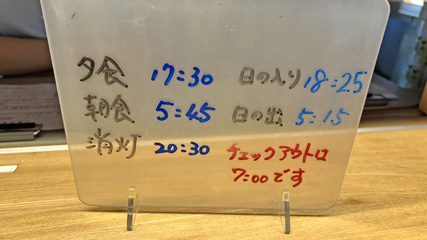 夕食 17:30 日の入り 18:25
朝食 5:45 日の出 5:15
消灯 20:30
チェックアウトは
7:00です